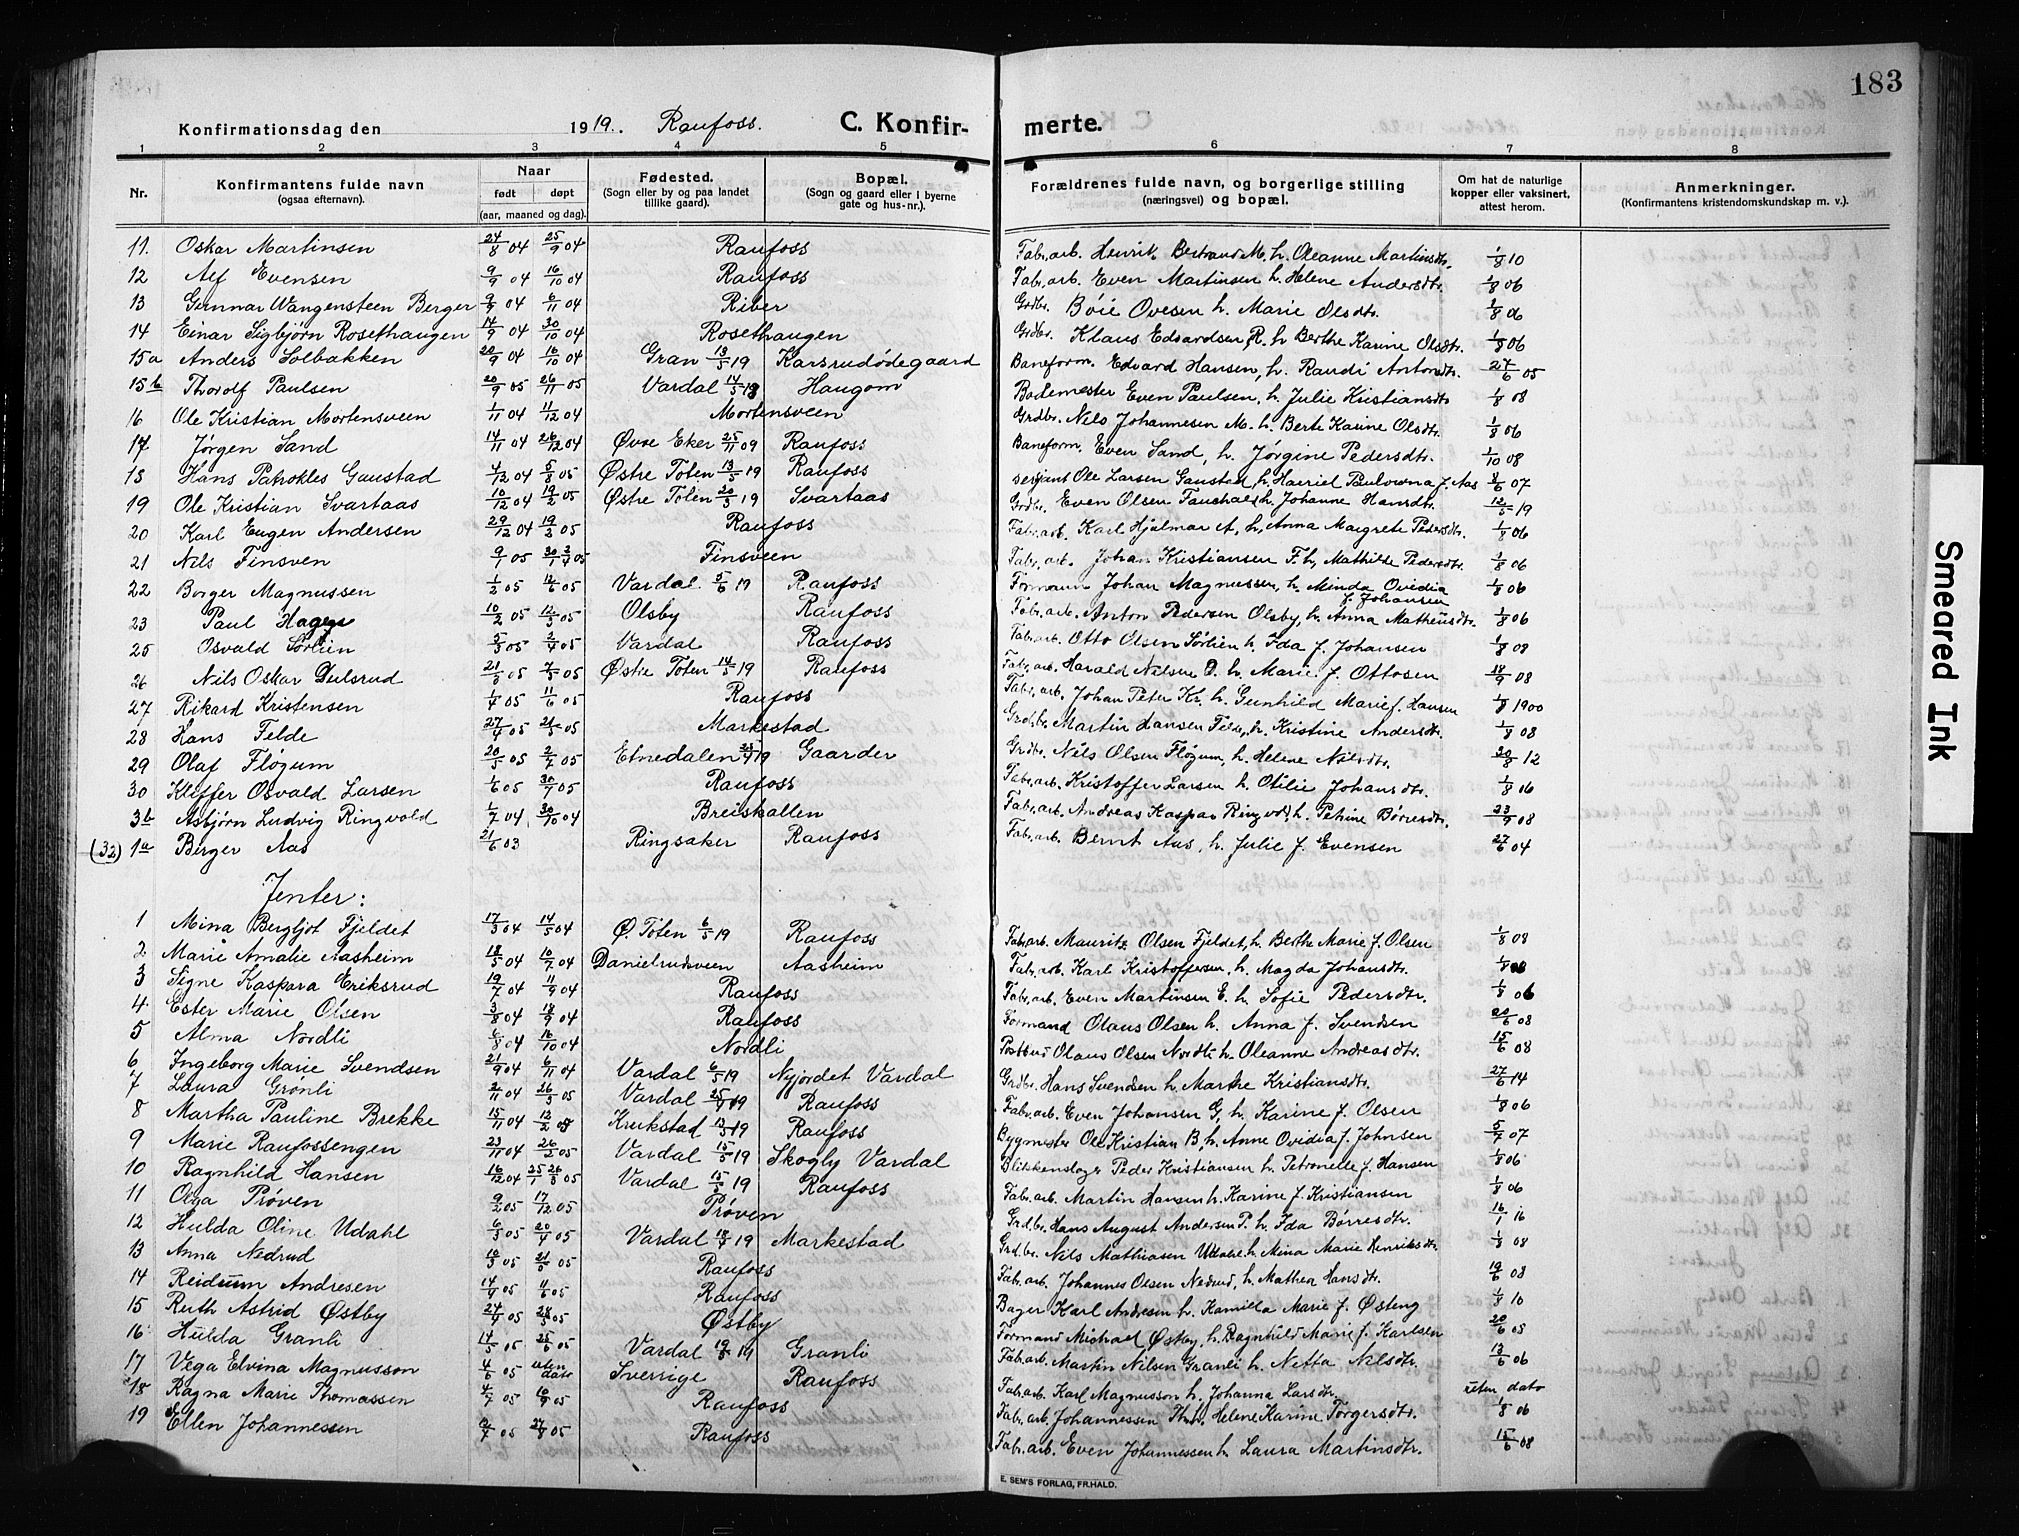 183
Konfirmationsdag den 1919. Raufoss. C. Konfir- merte.
1 2 3 4 5 6 7 8
Nr. Konfirmantens fulde navn (ogsaa efternavn). Naar født døpt (aar, maaned og dag). Fødested. (Sogn eller by og paa landet tillike gaard). Bopæl. (Sogn og gaard eller i byerne gate og hus-nr.). Forældrenes fulde navn, og borgerlige stilling (næringsvei) og bopæl. Om hat de naturlige kopper eller vaksinert, attest herom. Anmerkninger. (Konfirmantens kristendomskundskap m. v.).
11. Oskar Martinsen 24/8 04 25/9 04 Raufoss Fab.arb. Henrik Bertrand M. h. Oleanne Martinsdtr. 1/8 10
12 Alf Evensen 9/9 04 16/10 04 Raufoss Fab.arb. Even Martinsen h. Helene Andersdtr. 1/8 06
13 Gunnar Wangensteen Berger 9/9 04 6/11 04 Riber Grdbr. Bóie Ovesen h. Marie Olsdtr. 1/8 06
14 Einar Sigbjørn Rosethaugen 14/9 04 30/10 04 Rosethaugen Grdbr. Klaus Edvardsen R. h Berthe Karine Olsdtr. 1/8 06
15a Anders Solbakken 20/9 04 16/10 04 Gran 13/5 19 Karsrudødegaard Baneform. Edvard Hansen, h. Randi Antondtr. 27/6 05
15b Thorolf Paulsen 20/9 05 26/11 05 Vardal 14/5 19 Haugom Bademester Even Paulsen, h. Julie Kristiansdtr 1/8 08
16 Ole Kristian Mortensveen 1/11 04 11/12 04 Mortensveen Grdbr. Nils Johannesen M. h. Berte Karine Olsdtr. 1/8 06
17 Jørgen Sand 14/11 04 26/12 04 Øvre Eker 25/11 09 Raufoss Baneform. Even Sand, h. Jørgine Pedersdtr. 1/10 08
18 Hans Patrokles Gaustad 4/12 04 5/8 05 Østre Toten 13/5 19 Raufoss sersjant Ole Larsen Gaustad h. Paulowna f. Aas 3/6 07
19 Ole Kristian Svartaas 10/12 04 19/2 05 Østre Toten 20/3 19 Svartaas Grdbr. Even Olsen h. Johanne Hansdtr. 12/5 19
20 Karl Eugen Andersen 29/12 04 19/3 05 Raufoss Fab.arb. Karl Hjalmar A, h, Anna Margrete Pedersdtr. 1/8 06
21 Nils Finsven 9/1 05 30/1 2/4 05 Finsveen Fab. arb. Johan Kristiansen F. h, Mathilde Pedersdtr. 1/8 06
22 Borger Magnussen 1/2 05 12/6 05 Vardal 5/6 19 Raufoss Formann Johan Magnussen, h. Minda Ovidia f. Johansen 1/8 06
23 Paul Hagen 10/2 05 12/3 05 Olsby Raufoss Fab.arb. Anton Pedersen Olsby, h. Anna Matheusdtr. 1/8 06
25 Osvald Sørlien 5/3 05 2/4 05 Vardal Raufoss Fab.arb. Otto Olsen Sørlien h. Ida f. Johansen 1/8 08
26 Nils Oskar Dulsrud 21/3 05 7/5 05 Østre Toten 14/5 19 Raufoss Fab.arb. Harald Nilsen D. h. Marie f. Ottosen 18/9 08
27 Rikard Kristensen 1/4 05 11/6 05 Raufoss Fab.arb. Johan Peter Kr. h. Gunhild Marie f. Hansen 1/8 1900
28 Hans Felde 27/4 05 21/5 05 Markestad Grd.br. Martin Hansen Felde, h. Kristine Andersdtr. 1/8 08
29 Olaf Fløgum 20/5 05 2/7 05 Etnedalen 19 Gaarder Grdbr. Nils Olsen Fløgum, h. Helene Nilsdtr. 20/8 12
30 Kleffer Osvald Larsen 1/6 05 30/7 05 Raufoss Fab.arb. Kristoffer Larsen h. Otilie Johansdtr. 1/8 16
3b Asbjørn Ludvig Ringvold 1/7 04 30/10 04 Breiskallen Fab.arb. Andreas Kaspar Ringvold, h. Petrine Børresdtr. 23/9 08
(32) 1a Berger Aas 21/6 03 Ringsaker Raufoss Fab.arb. Bernt Aas, h. Julie f. Evensen 27/6 04
Jenter:
1 Mina Bergljot Fjeldet 17/3 04 14/5 04 Ø. Toten 6/5 19 Raufoss Fab.arb. Mauritz Olsen Fjeldet, h. Berthe Marie f. Olsen 1/8 08
2 Marie Amalie Aasheim 18/5 04 10/7 04 Danielrudsveen Aasheim Fab. arb. Karl Kristoffersen, h. Magda Johansdtr. 1/8
3 Signe Kaspara Eriksrud 19/7 04 11/9 04 Raufoss Fab.arb. Even Martinsen E. h. Sofie Pedersdtr. 1/8 06
4 Ester Marie Olsen 3/8 04 18/9 04 Raufoss Formand Olaus Olsen h. Anna f. Svendsen 20/6 08
5 Alma Nordli 6/8 04 16/10 04 Nordli Postbud Olaus Olsen Nordli h. Oleanne Andreasdtr. 15/6 08
6 Ingeborg Marie Svendsen 21/9 04 6/11 04 Vardal 6/5 19 Nyjordet Vardal Grdbr. Hans Svendsen h. Marthe Kristiansdtr. 27/6 14
7 Laura Grønli 2/11 04 26/3 05 Vardal 25/4 19 Raufoss Fab.arb. Even Johansen G, h. Karine f. Olsen 1/8 06
8 Martha Pauline Brekke 15/11 04 12/2 05 Krukstad 13/5 19 Raufoss Bygmester Ole Kristian B, h. Anne Ovidia f. Johnsen 5/7 07
9 Marie Raufossengen 23/11 04 26/2 05 Vardal 15/5 19 Skogly Vardal Blikkenslager Peder Kristiansen h. Petronelle f. Hansen 1/8 06
10 Ragnhild Hansen 16/12 04 25/1 26/3 05 Vardal 15/5 19 Raufoss Fab.arb. Martin Hansen h. Karine f. Kristiansen 1/8 06
11 Olga Prøven 9/2 05 17/12 05 Prøven Grd.br. Hans August Andersen P. h. Ida Børresdtr. 16/1 16
12 Hulda Oline Udahl 6/3 05 20/4 05 Vardal 18/4 19 Markestad Grd.br. Nils Mathiasen Udahl h. Mina Marie Henriksdtr. 1/8 08
13 Anna Nedrud 10/3 05 21/5 05 Raufoss Fab.arb. Johannes Olsen Nedrud, h. Mathea Hansdtr. 19/6 08
14 Reidunn Andresen 14/4 05 11/6 05 Raufoss Bager Karl Andresen h. Kamilla Marie f. Østeng 1/8 10
15 Ruth Astrid Østby 24/4 05 28/5 05 Østby Formand Michael Østby, h. Ragnhild Marie f. Karlsen 20/6 05
16 Hulda Granli 14/5 05 25/6 05 Vardal 19 Granli Fab.arb. Martin Nilsen Granli h. Netta Nilsdtr. 13/6 06
17 Vega Elvina Magnusson 4/6 05 uten dato Sverrige Raufoss Fab.arb. Karl Magnusson h. Johanna Larsdtr. uten dato
18 Ragna Marie Thomassen 4/7 05 10/9 05 Raufoss Fab.arb. Johannessen Th. h. Helene Karine Torgersdtr. 1/8 06
19 Ellen Johannessen 12/7 05 27/8 05 Raufoss Fab.arb. Even Johannessen h. Laura Martinsdtr. 15/6 08
E. SEM'S FORLAG, FR.HALD.
Smeared Ink